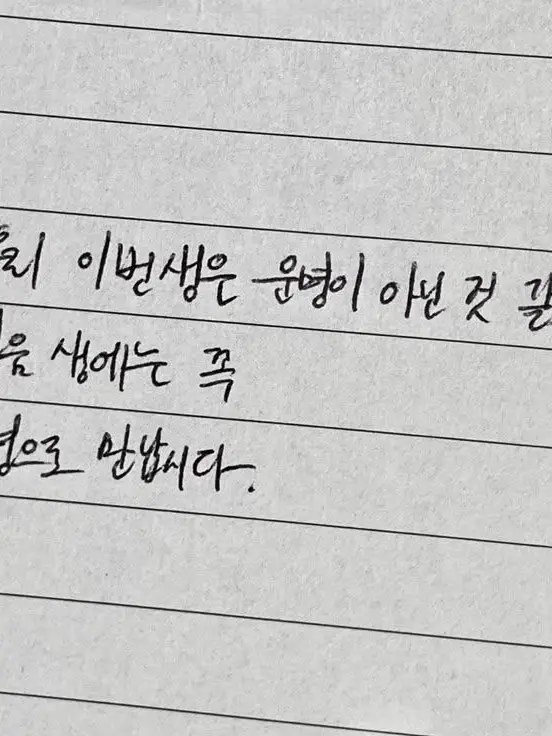 우리 이번생은 운명이 아닌 것 같
음 생에는 꼭
명으로 만납시다.